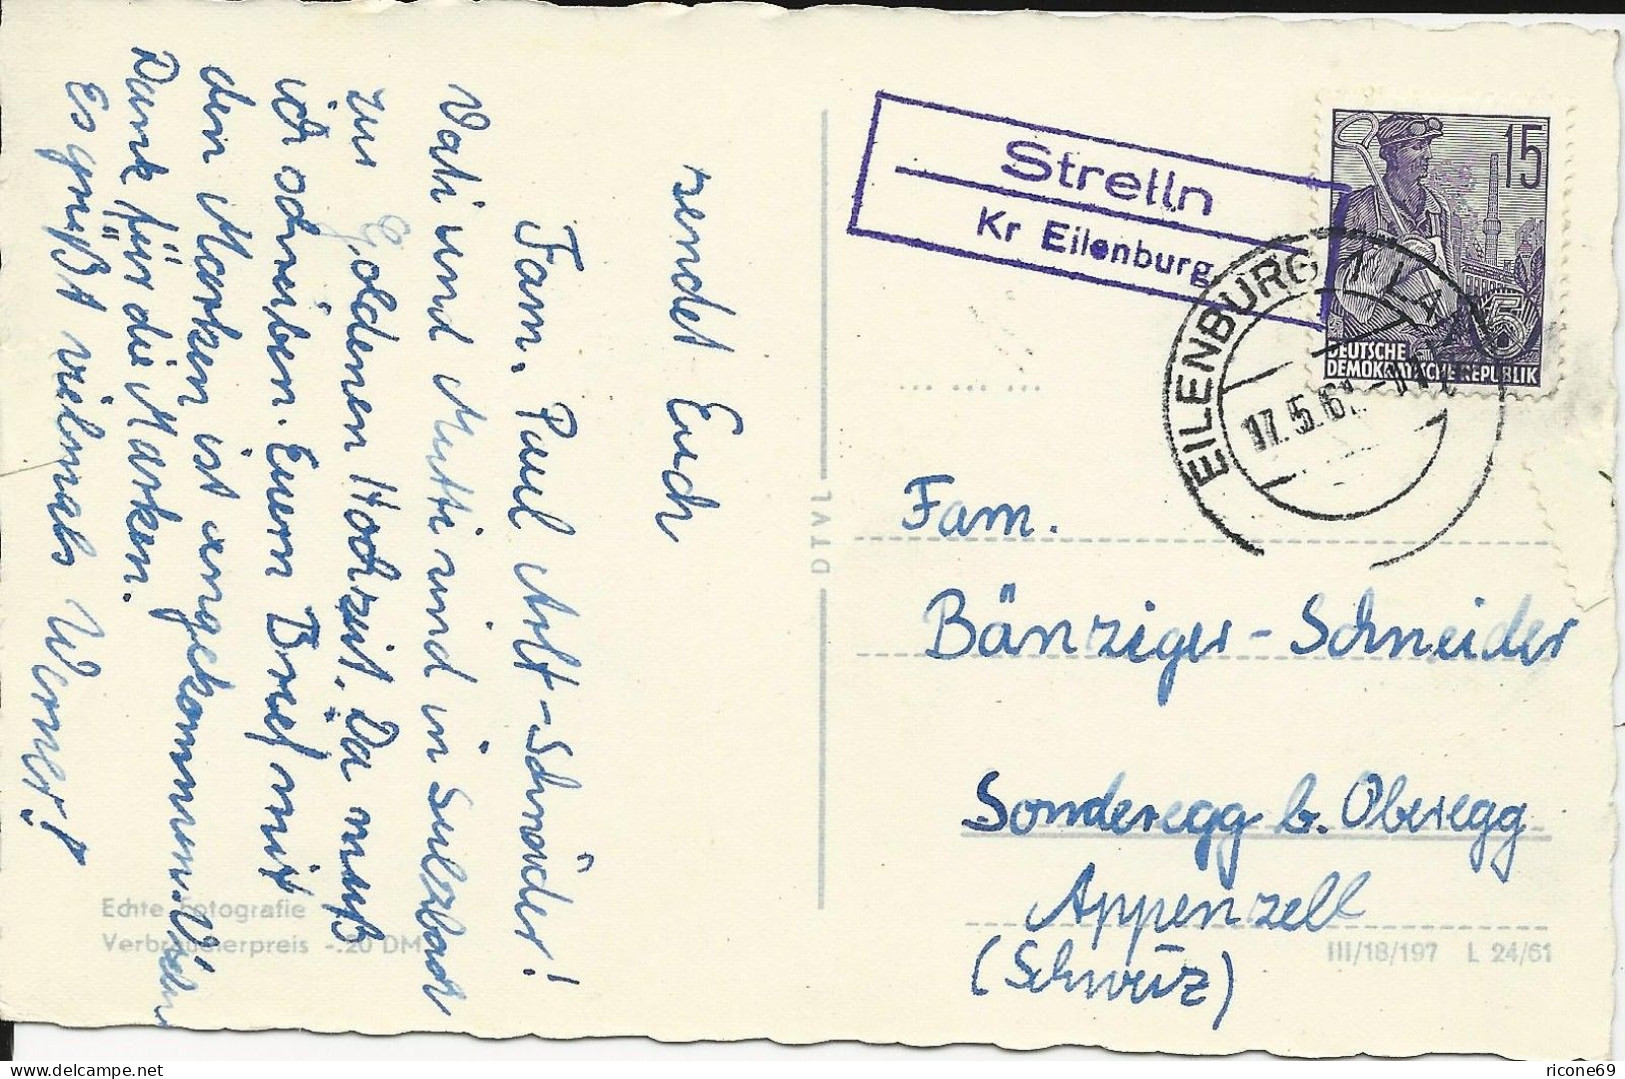 sendet Euch
Fam. Paul Arlt-Schneider!
Vati und Mutti sind in Sulzbach
zur Goldenen Hochzeit. Da muß
ich schreiben. Euern Brief mit
den Marken ist angekommen. Vielen
Dank für die Marken.
Es grüßt vielmals Werner!
Echte Fotografie
Verbraucherpreis -.20 DM
DTVL
Strelln
Kr Eilenburg
15
DEUTSCHE
DEMOKRATISCHE REPUBLIK
EILENBURG 1
17.5.61
Fam.
Bänziger-Schneider
Sonderegg b. Oberegg
Appenzell
(Schweiz)
III/18/197 L 24/61
ricone69